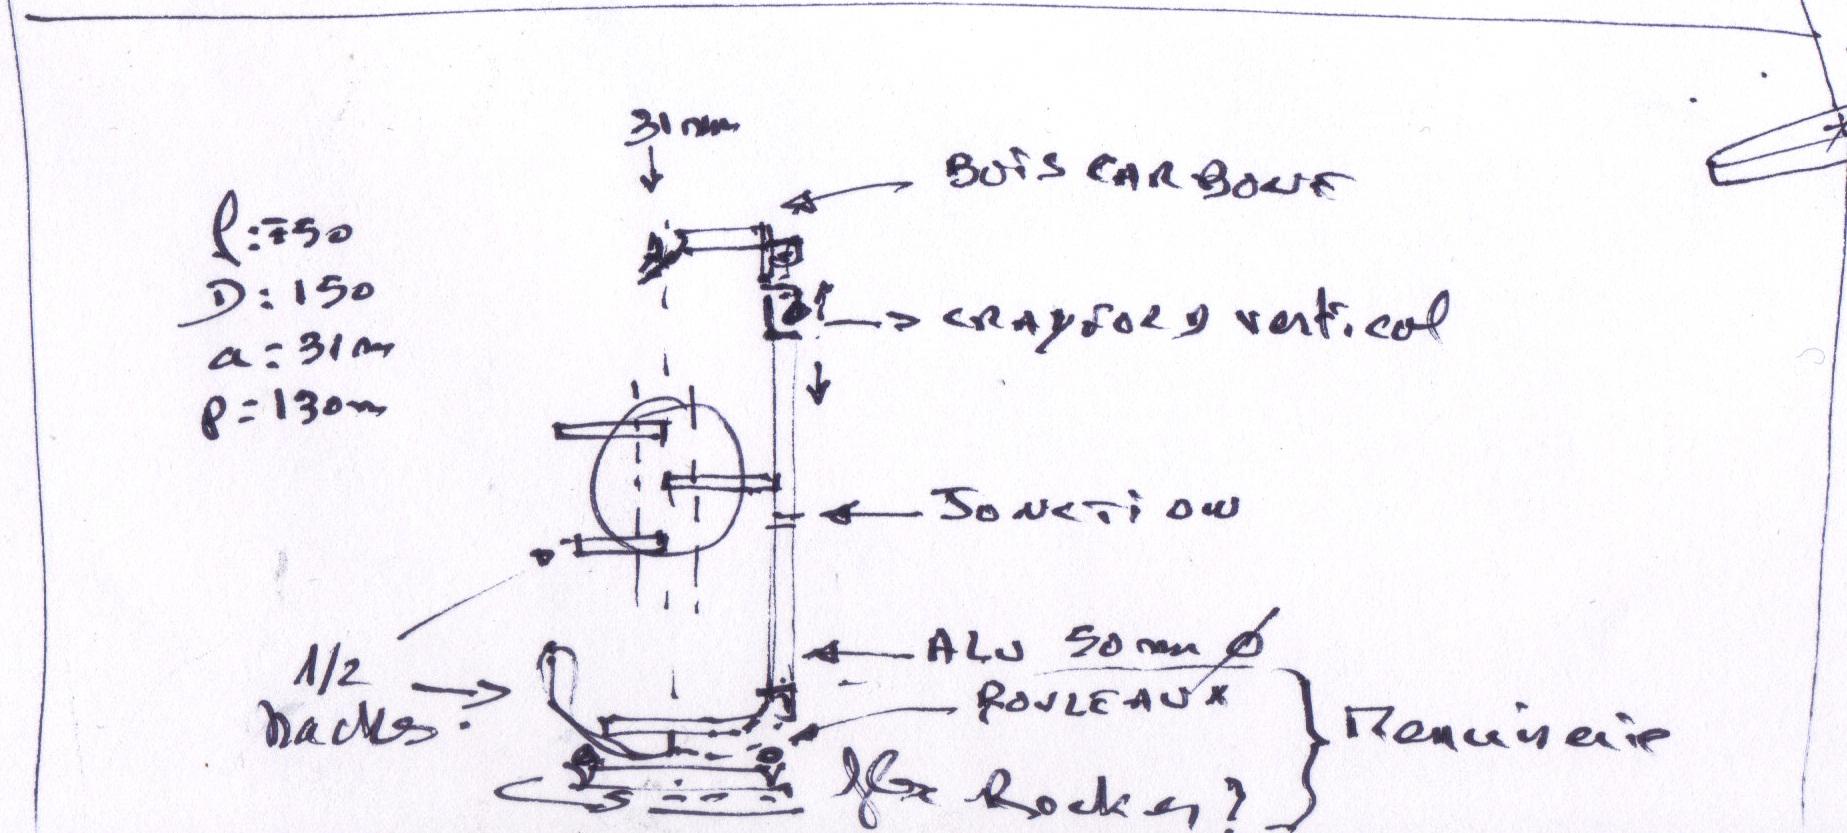 31 mm
BOIS CARBONE
f: 750
D: 150
a = 31 m
p = 130 m
CRAYFORD vertical
JONCTION
ALU 50 mm Ø
1/2
ROULEAUX
Menuiserie
Rocker ?